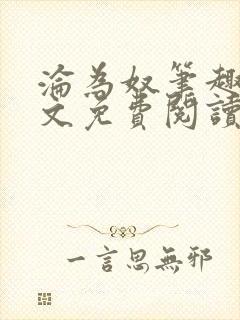 淪為奴筆趣
文免費閱讀
一言思無邪